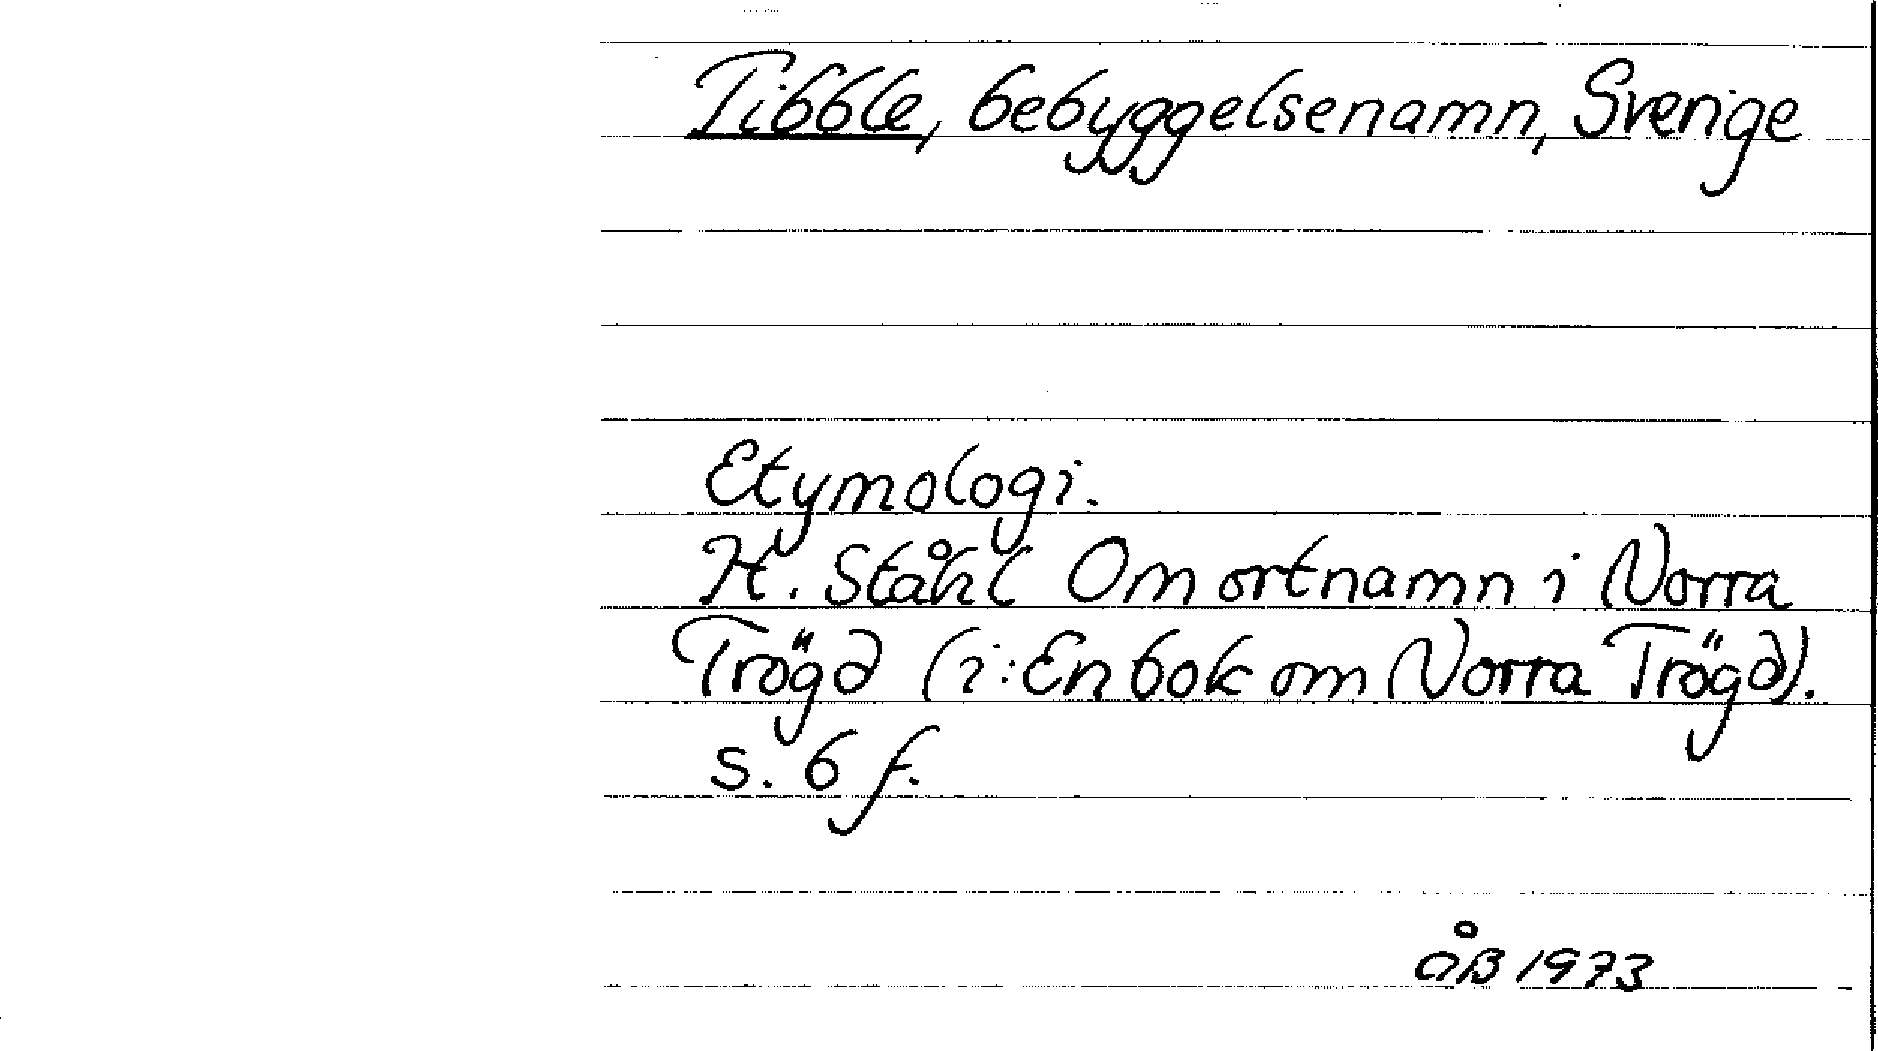 Tibble, bebyggelsenamn, Sverige
Etymologi.
H. Ståhl Om ortnamn i Norra
Trögd (i: En bok om Norra Trögd).
s. 6 f.
ÅB 1973